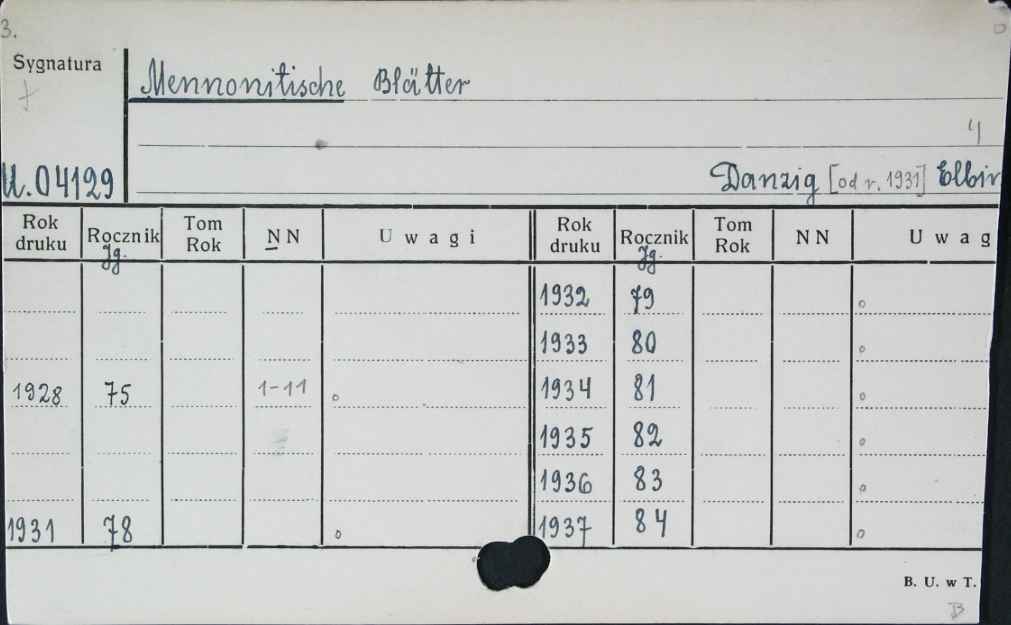 3.
Sygnatura
Mennonitische Blätter
4
U.04129
Danzig [od r. 1931] Elbin
Rok druku Rocznik Jg. Tom Rok N N Uwagi Rok druku Rocznik Jg. Tom Rok N N Uwag
1932 79 o
1933 80 o
1928 75 1-11 o 1934 81 o
1935 82 o
1936 83 o
1931 78 o 1937 84 o
B. U. w T.